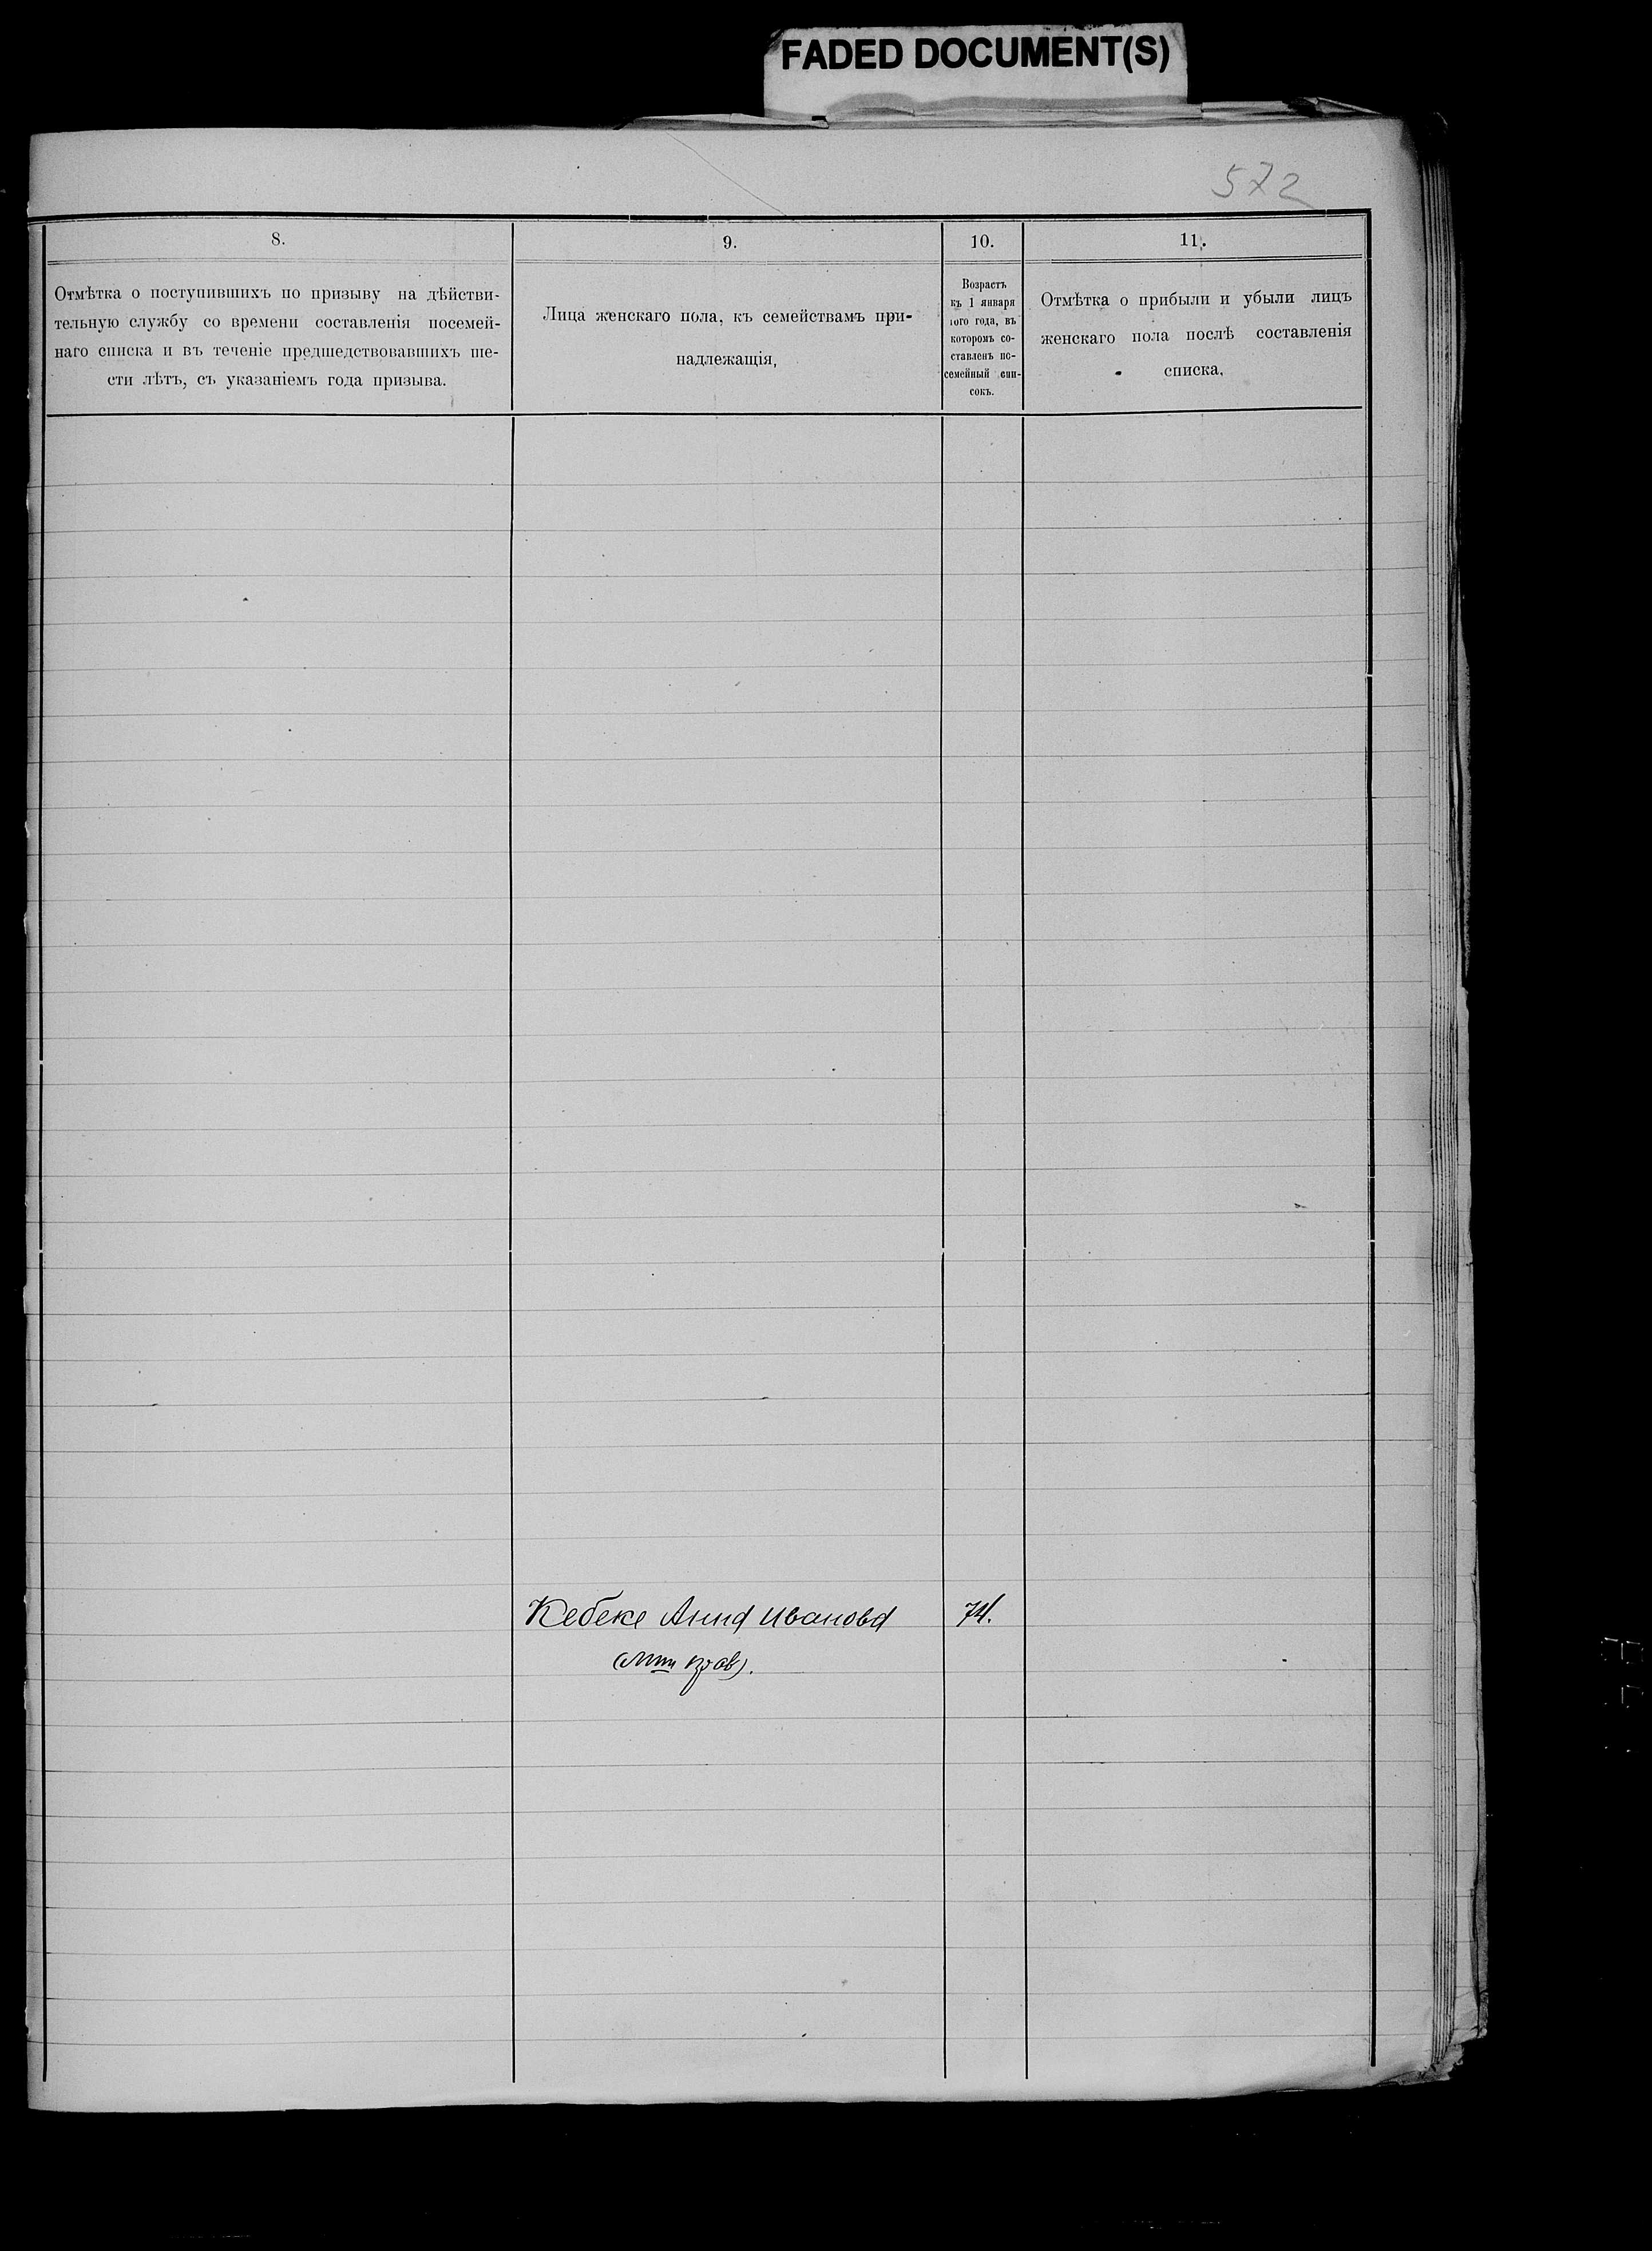 FADED DOCUMENT(S)
572
8.
9.
10.
11.
Отмѣтка о поступившихъ по призыву на дѣйстви-
тельную службу со времени составленія посемей-
наго списка и въ теченіе предшедствовавшихъ ше-
сти лѣтъ, съ указаніемъ года призыва.
Лица женскаго пола, къ семействамъ при-
надлежащія,
Возрастъ
къ 1 января
того года, въ
которомъ со-
ставленъ по-
семейный спи-
сокъ.
Отмѣтка о прибыли и убыли лицъ
женскаго пола послѣ составленія
списка.
Кебеке Анна Иванова
74.